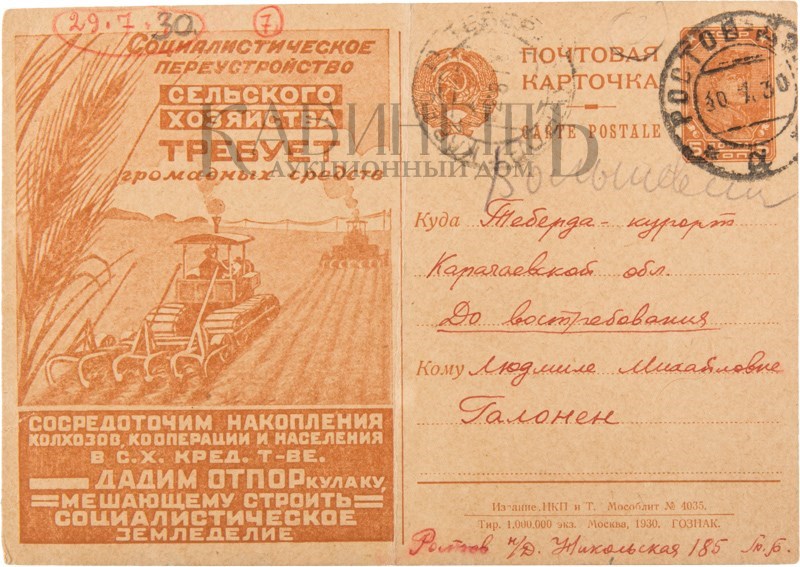 29.7.30. 7
СОЦИАЛИСТИЧЕСКОЕ
ПЕРЕУСТРОЙСТВО
СЕЛЬСКОГО
ХОЗЯЙСТВА
ТРЕБУЕТ
громадных средств
СОСРЕДОТОЧИМ НАКОПЛЕНИЯ
КОЛХОЗОВ, КООПЕРАЦИИ И НАСЕЛЕНИЯ
В С.Х. КРЕД. Т-ВЕ.
ДАДИМ ОТПОР КУЛАКУ,
МЕШАЮЩЕМУ СТРОИТЬ
СОЦИАЛИСТИЧЕСКОЕ
ЗЕМЛЕДЕЛИЕ
КАБИНЕТЪ
АУКЦИОННЫЙ ДОМ
ПОЧТОВАЯ
КАРТОЧКА
CARTE POSTALE
РОСТОВ
30.7.30
Куда Теберда-курорт
Карачаевской обл.
До востребования
Кому Людмиле Михайловне
Галонен
Издание НКП и Т. Мособлит № 4035.
Тир. 1.000.000 экз. Москва, 1930. ГОЗНАК.
Ростов н/Д. Никольская 185